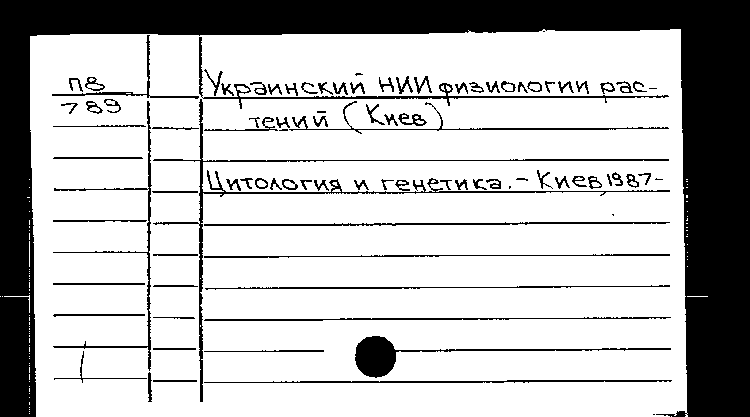 П8
789
Украинский НИИ физиологии рас-
тений (Киев)
Цитология и генетика. - Киев, 1987-